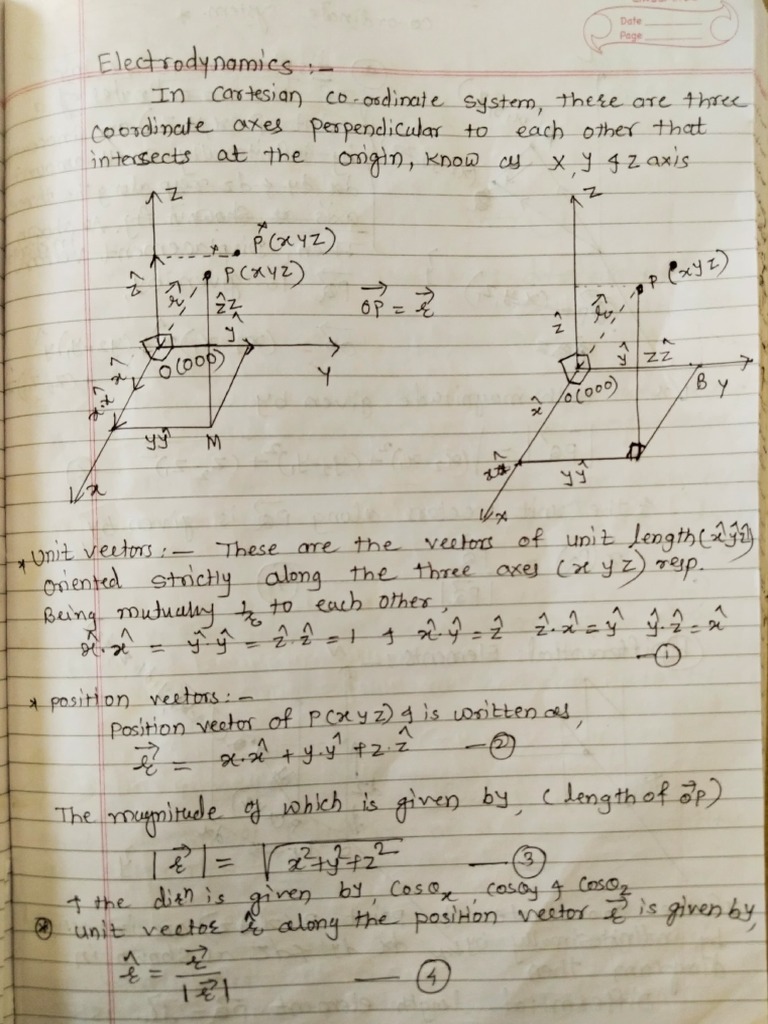 Date
Page
Electrodynamics :-
In cartesian co-ordinate system, there are three
coordinate axes perpendicular to each other that
intersects at the origin, know as x, y & z axis
z
P(xyz)
P(xyz)
ẑ
r⃗
zẑ
ŷ
O(000)
x̂
xx̂
yŷ
M
Y
x
OP⃗ = r⃗
z
P(xyz)
ẑ
r⃗
ŷ
zẑ
O(000)
B
Y
x̂
xx̂
yŷ
x
* Unit vectors :- These are the vectors of unit length (x̂ŷẑ)
oriented strictly along the three axes (x y z) resp.
Being mutually to each other,
x̂·x̂ = ŷ·ŷ = ẑ·ẑ = 1 & x̂·ŷ = ẑ ẑ·x̂ = ŷ ŷ·ẑ = x̂
- ①
* position vectors :-
Position vector of P(xyz) & is written as,
r⃗ = x·x̂ + y·ŷ + z·ẑ - ②
The magnitude of which is given by, (length of OP⃗)
|r⃗| = √x²+y²+z² - ③
& the dirn is given by, cosθx, cosθy & cosθz
* unit vector r̂ along the position vector r⃗ is given by,
r̂ = r⃗ / |r⃗| - ④